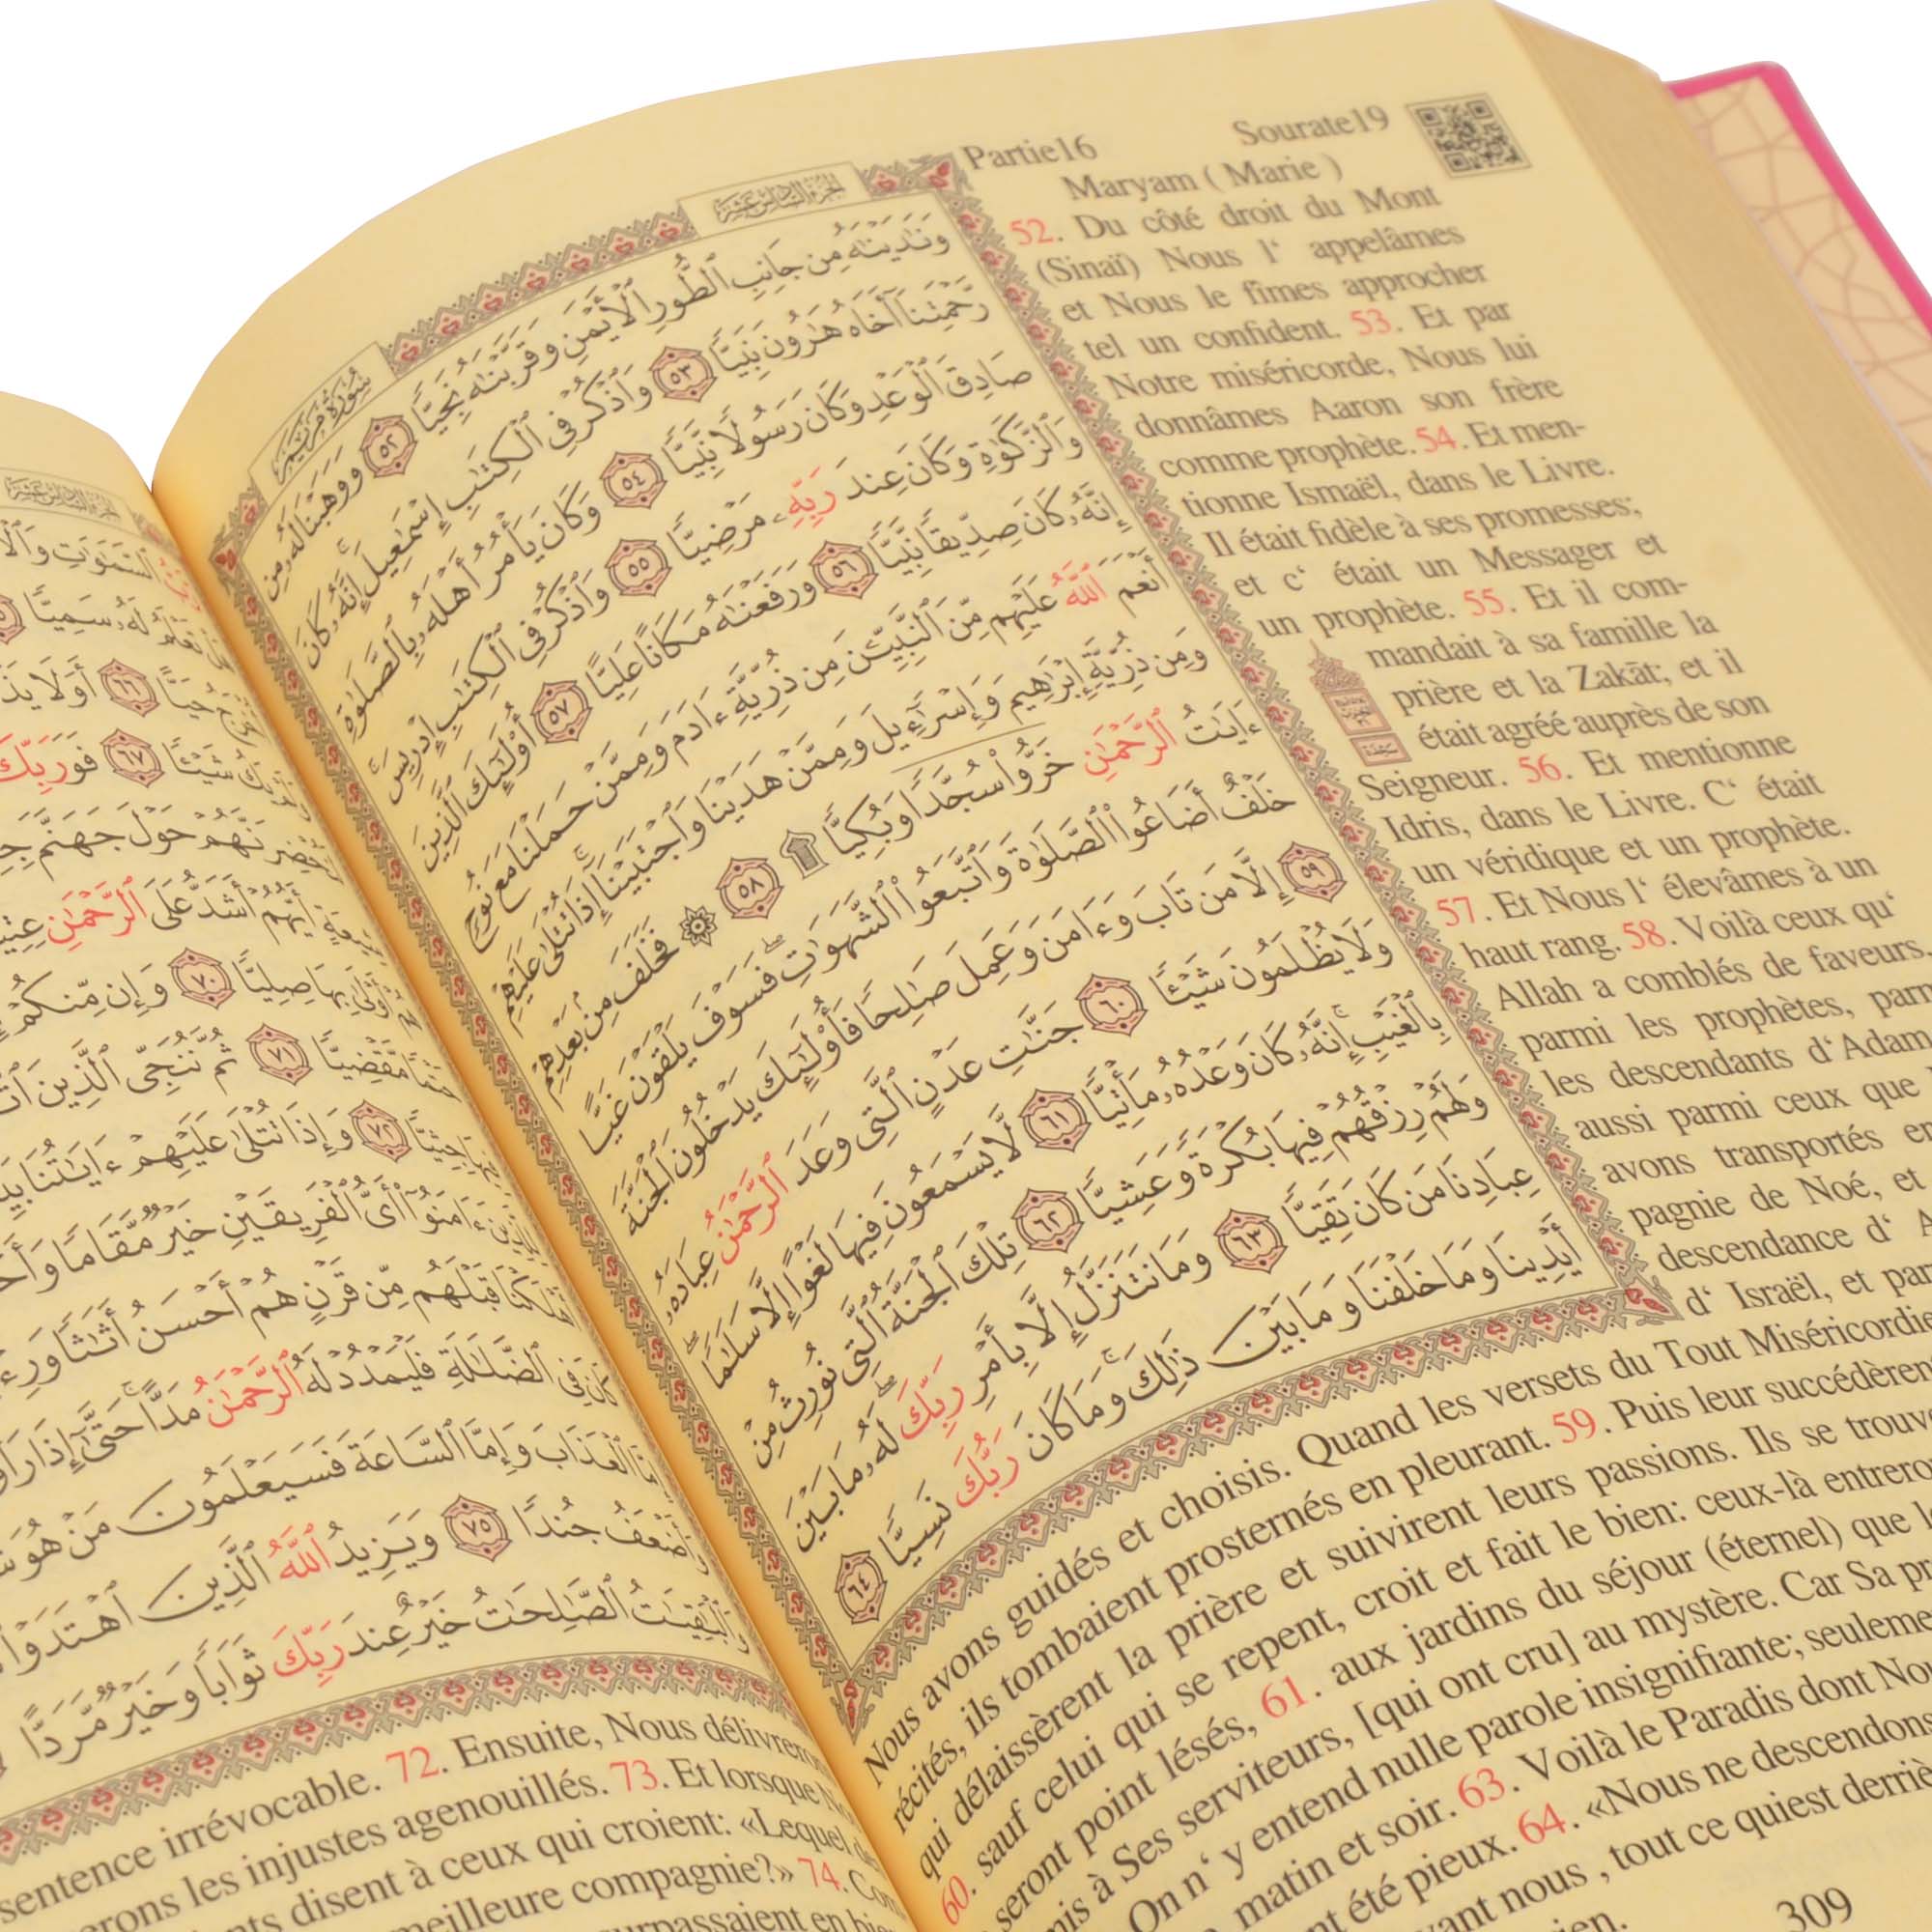 Partie16 Sourate19
Maryam ( Marie )
52. Du côté droit du Mont
(Sinaï) Nous l‘ appelâmes
et Nous le fîmes approcher
tel un confident. 53. Et par
Notre miséricorde, Nous lui
donnâmes Aaron son frère
comme prophète. 54. Et men-
tionne Ismaël, dans le Livre.
Il était fidèle à ses promesses;
et c‘ était un Messager et
un prophète. 55. Et il com-
mandait à sa famille la
prière et la Zakāt; et il
était agréé auprès de son
Seigneur. 56. Et mentionne
Idris, dans le Livre. C‘ était
un véridique et un prophète.
57. Et Nous l‘ élevâmes à un
haut rang. 58. Voilà ceux qu‘
Allah a comblés de faveurs,
parmi les prophètes, parm
les descendants d‘Adam
aussi parmi ceux que
avons transportés en
pagnie de Noé, et
descendance d‘ A
d‘ Israël, et par
Nous avons guidés et choisis. Quand les versets du Tout Miséricordie
récités, ils tombaient prosternés en pleurant. 59. Puis leur succédèren
qui délaissèrent la prière et suivirent leurs passions. Ils se trouv
60. sauf celui qui se repent, croit et fait le bien: ceux-là entrero
seront point lésés, 61. aux jardins du séjour (éternel) que le
mis à Ses serviteurs, [qui ont cru] au mystère. Car Sa pr
On n‘ y entend nulle parole insignifiante; seuleme
matin et soir. 63. Voilà le Paradis dont Nou
nt été pieux. 64. «Nous ne descendons
vant nous , tout ce quiest derriè
ien.
309
سُورَةُ مَرْيَمَ الجزء السادس عشر
وَنَٰدَيْنَٰهُ مِن جَانِبِ ٱلطُّورِ ٱلْأَيْمَنِ وَقَرَّبْنَٰهُ نَجِيًّا ٥٢ وَوَهَبْنَا لَهُۥ مِن
رَّحْمَتِنَآ أَخَاهُ هَٰرُونَ نَبِيًّا ٥٣ وَٱذْكُرْ فِى ٱلْكِتَٰبِ إِسْمَٰعِيلَ ۚ إِنَّهُۥ كَانَ
صَادِقَ ٱلْوَعْدِ وَكَانَ رَسُولًا نَّبِيًّا ٥٤ وَكَانَ يَأْمُرُ أَهْلَهُۥ بِٱلصَّلَوٰةِ
وَٱلزَّكَوٰةِ وَكَانَ عِندَ رَبِّهِۦ مَرْضِيًّا ٥٥ وَٱذْكُرْ فِى ٱلْكِتَٰبِ إِدْرِيسَ ۚ
إِنَّهُۥ كَانَ صِدِّيقًا نَّبِيًّا ٥٦ وَرَفَعْنَٰهُ مَكَانًا عَلِيًّا ٥٧ أُو۟لَٰٓئِكَ ٱلَّذِينَ
أَنْعَمَ ٱللَّهُ عَلَيْهِم مِّنَ ٱلنَّبِيِّـۧنَ مِن ذُرِّيَّةِ ءَادَمَ وَمِمَّنْ حَمَلْنَا مَعَ نُوحٍ
وَمِن ذُرِّيَّةِ إِبْرَٰهِيمَ وَإِسْرَٰٓءِيلَ وَمِمَّنْ هَدَيْنَا وَٱجْتَبَيْنَآ ۚ إِذَا تُتْلَىٰ عَلَيْهِمْ
ءَايَٰتُ ٱلرَّحْمَٰنِ خَرُّوا۟ سُجَّدًا وَبُكِيًّا ۩ ٥٨ ۞ فَخَلَفَ مِنۢ بَعْدِهِمْ
خَلْفٌ أَضَاعُوا۟ ٱلصَّلَوٰةَ وَٱتَّبَعُوا۟ ٱلشَّهَوَٰتِ ۖ فَسَوْفَ يَلْقَوْنَ غَيًّا
٥٩ إِلَّا مَن تَابَ وَءَامَنَ وَعَمِلَ صَٰلِحًا فَأُو۟لَٰٓئِكَ يَدْخُلُونَ ٱلْجَنَّةَ
وَلَا يُظْلَمُونَ شَيْـًٔا ٦٠ جَنَّٰتِ عَدْنٍ ٱلَّتِى وَعَدَ ٱلرَّحْمَٰنُ عِبَادَهُۥ
بِٱلْغَيْبِ ۚ إِنَّهُۥ كَانَ وَعْدُهُۥ مَأْتِيًّا ٦١ لَّا يَسْمَعُونَ فِيهَا لَغْوًا إِلَّا سَلَٰمًا ۖ
وَلَهُمْ رِزْقُهُمْ فِيهَا بُكْرَةً وَعَشِيًّا ٦٢ تِلْكَ ٱلْجَنَّةُ ٱلَّتِى نُورِثُ مِنْ
عِبَادِنَا مَن كَانَ تَقِيًّا ٦٣ وَمَا نَتَنَزَّلُ إِلَّا بِأَمْرِ رَبِّكَ ۖ لَهُۥ مَا بَيْنَ
أَيْدِينَا وَمَا خَلْفَنَا وَمَا بَيْنَ ذَٰلِكَ ۚ وَمَا كَانَ رَبُّكَ نَسِيًّا ٦٤
ٱلسَّمَٰوَٰتِ
لَهُۥ سَمِيًّا
حَيًّا ٦٦ أَوَلَا
شَيْـًٔا ٦٧ فَوَرَبِّكَ
حَوْلَ جَهَنَّمَ
أَيُّهُمْ أَشَدُّ عَلَى ٱلرَّحْمَٰنِ
أَوْلَىٰ بِهَا صِلِيًّا ٧٠ وَإِن مِّنكُمْ
مَّقْضِيًّا ٧١ ثُمَّ نُنَجِّى ٱلَّذِينَ
جِثِيًّا ٧٢ وَإِذَا تُتْلَىٰ عَلَيْهِمْ ءَايَٰتُنَا
ءَامَنُوٓا۟ أَىُّ ٱلْفَرِيقَيْنِ خَيْرٌ مَّقَامًا
قَبْلَهُم مِّن قَرْنٍ هُمْ أَحْسَنُ أَثَٰثًا
كَانَ فِى ٱلضَّلَٰلَةِ فَلْيَمْدُدْ لَهُ ٱلرَّحْمَٰنُ مَدًّا ۚ حَتَّىٰٓ إِذَا
ٱلْعَذَابَ وَإِمَّا ٱلسَّاعَةَ فَسَيَعْلَمُونَ مَنْ هُوَ
وَأَضْعَفُ جُندًا ٧٥ وَيَزِيدُ ٱللَّهُ ٱلَّذِينَ ٱهْتَدَوْا۟
وَٱلْبَٰقِيَٰتُ ٱلصَّٰلِحَٰتُ خَيْرٌ عِندَ رَبِّكَ ثَوَابًا وَخَيْرٌ مَّرَدًّا
sentence irrévocable. 72. Ensuite, Nous délivrero
erons les injustes agenouillés. 73. Et lorsque No
nts disent à ceux qui croient: «Lequel de
meilleure compagnie?» 74. Com
urpassaient en bie